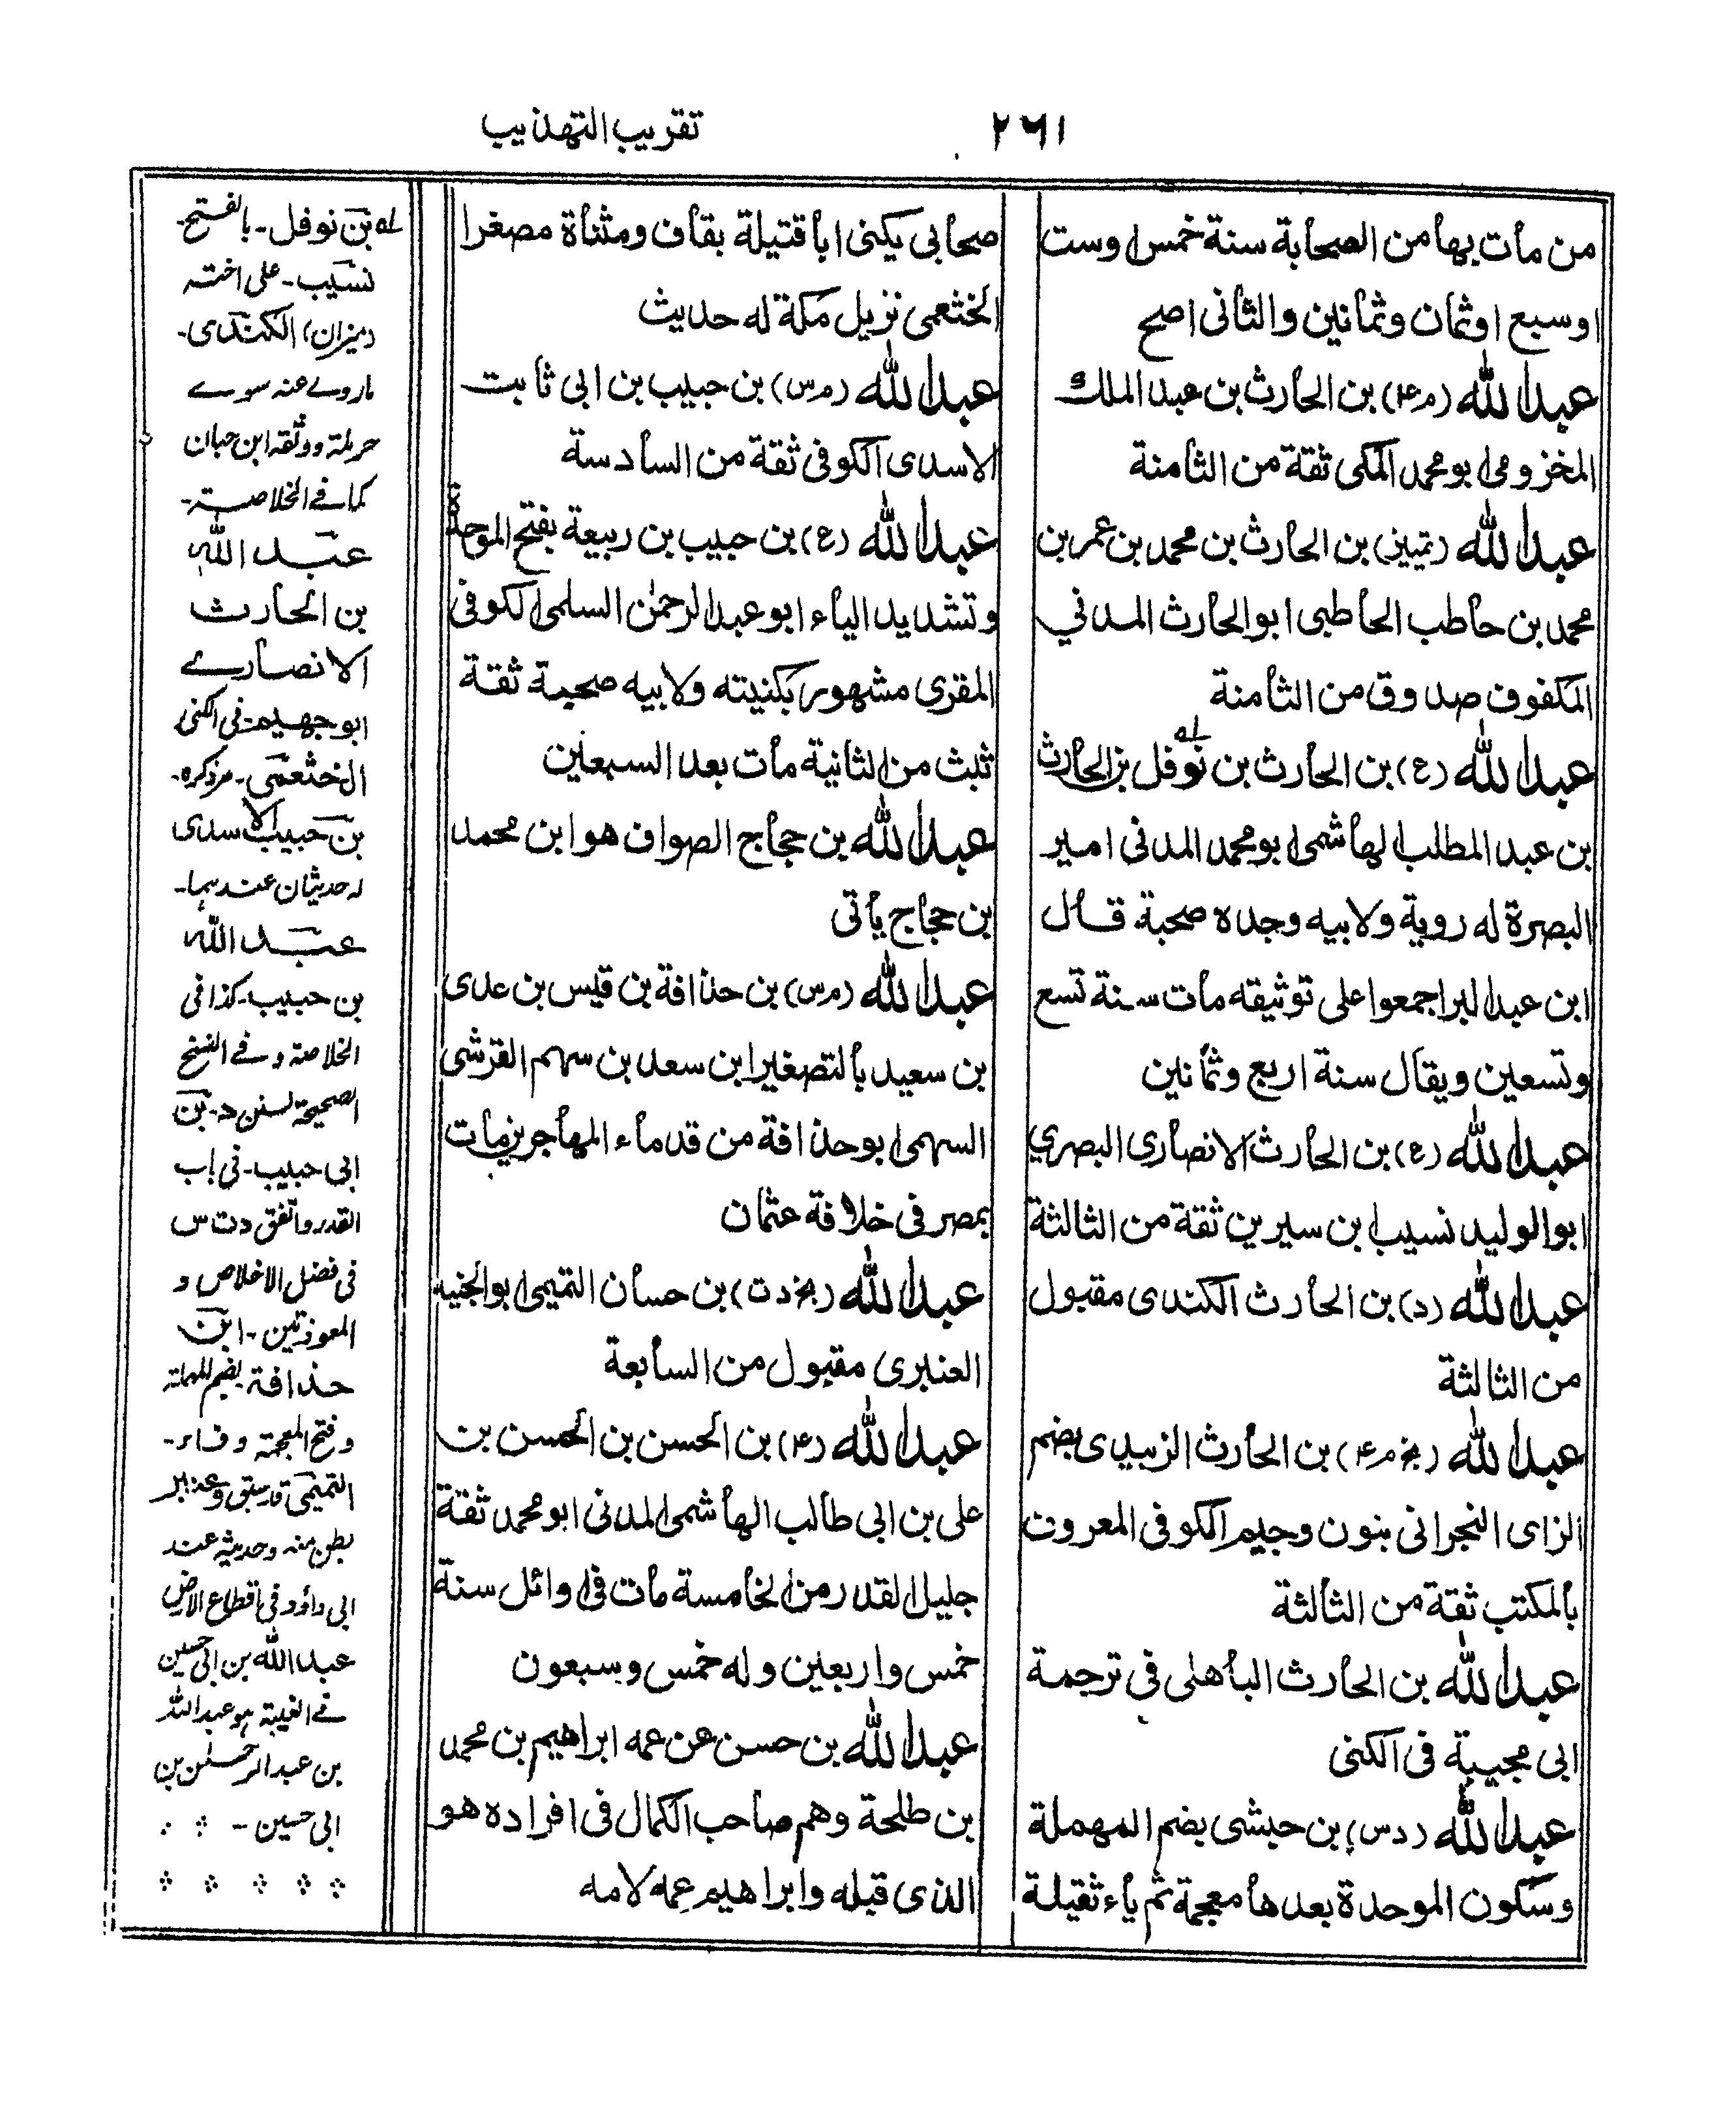 ٢٦١
تقريب التهذيب
من مات بها من الصحابة سنة خمس او ست
او سبع او ثمان وثمانين والثانى اصح
عبد الله (م ۴) بن الحارث بن عبد الملك
المخزومى ابو محمد المكى ثقة من الثامنة
عبد الله (تمييز) بن الحارث بن محمد بن عمر بن
محمد بن حاطب الحاطبى ابو الحارث المدني
المكفوف صدوق من الثامنة
عبد الله (ع) بن الحارث بن نوفل بن الحارث
بن عبد المطلب الهاشمى ابو محمد المدنى امير
البصرة له روية ولابيه وجده صحبة قال
ابن عبد البر اجمعوا على توثيقه مات سنة تسع
وتسعين ويقال سنة اربع وثمانين
عبد الله (ع) بن الحارث الانصارى البصري
ابو الوليد نسيب ابن سيرين ثقة من الثالثة
عبد الله (د) بن الحارث الكندى مقبول
من الثالثة
عبد الله (بخ م ۴) بن الحارث الزبيدى بضم
الزاى النجرانى بنون وجيم الكوفى المعروف
بالمكتب ثقة من الثالثة
عبد الله بن الحارث الباهلى فى ترجمة
ابى مجيبة فى الكنى
عبد الله (د س) بن حبشى بضم المهملة
وسكون الموحدة بعدها معجمة ثم ياء ثقيلة
صحابى يكنى ابا قتيلة بقاف ومثناة مصغرا
الخثعمى نزيل مكة له حديث
عبد الله (م س) بن حبيب بن ابى ثابت
الاسدى الكوفى ثقة من السادسة
عبد الله (ع) بن حبيب بن ربيعة بفتح الموحدة
وتشديد الياء ابو عبد الرحمٰن السلمى الكوفى
المقرى مشهور بكنيته ولابيه صحبة ثقة
ثبت من الثانية مات بعد السبعين
عبد الله بن حجاج الصواف هو ابن محمد
بن حجاج ياتى
عبد الله (م س) بن حذافة بن قيس بن عدى
بن سعيد بالتصغير ابن سعد بن سهم القرشى
السهمى ابو حذافة من قدماء المهاجرين مات
بمصر فى خلافة عثمان
عبد الله (بخ د ت) بن حسان التميمى ابو الجنيد
العنبرى مقبول من السابعة
عبد الله (۴) بن الحسن بن الحسن بن
على بن ابى طالب الهاشمى المدنى ابو محمد ثقة
جليل القدر من الخامسة مات فى اوائل سنة
خمس واربعين وله خمس وسبعون
عبد الله بن حسن عن عمه ابراهيم بن محمد
بن طلحة وهم صاحب الكمال فى افراده هو
الذى قبله وابراهيم عمه لامه
له بن نوفل - بالفتح -
نسيب - على اخته
(ميزان) الكندى -
ما روے عنه سوے
حرملة ووثقه ابن حبان
كما فے الخلاصة -
عبد الله
بن الحارث
الانصارے
ابو جهيم - فى الكنى
الخثعمى - مر ذكره -
بن حبيب الاسدى
له حديثان عندهما -
عبد الله
بن حبيب - كذا فى
الخلاصة وفے النسخ
الصحيحة لسنن د - بن
ابى حبيب - فى باب
القدر واتفق د ت س
فى فضل الاخلاص و
المعوذتين - ابن
حذافة بضم المهملة
وفتح المعجمة وفاء -
التميمى قد سبق وعنبر
بطن منه وحديثه عند
ابى داؤد فى اقطاع الارض
عبد الله بن ابى حسين
فے الغيبة هو عبد الله
بن عبد الرحمٰن بن
ابى حسين -